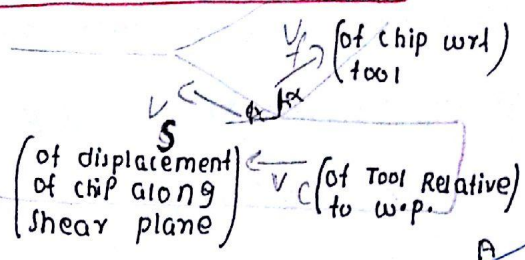 Vf (of chip wrt
tool)
V
S
(of displacement
of chip along
shear plane)
Vc (of Tool Relative
to w.p.)
A